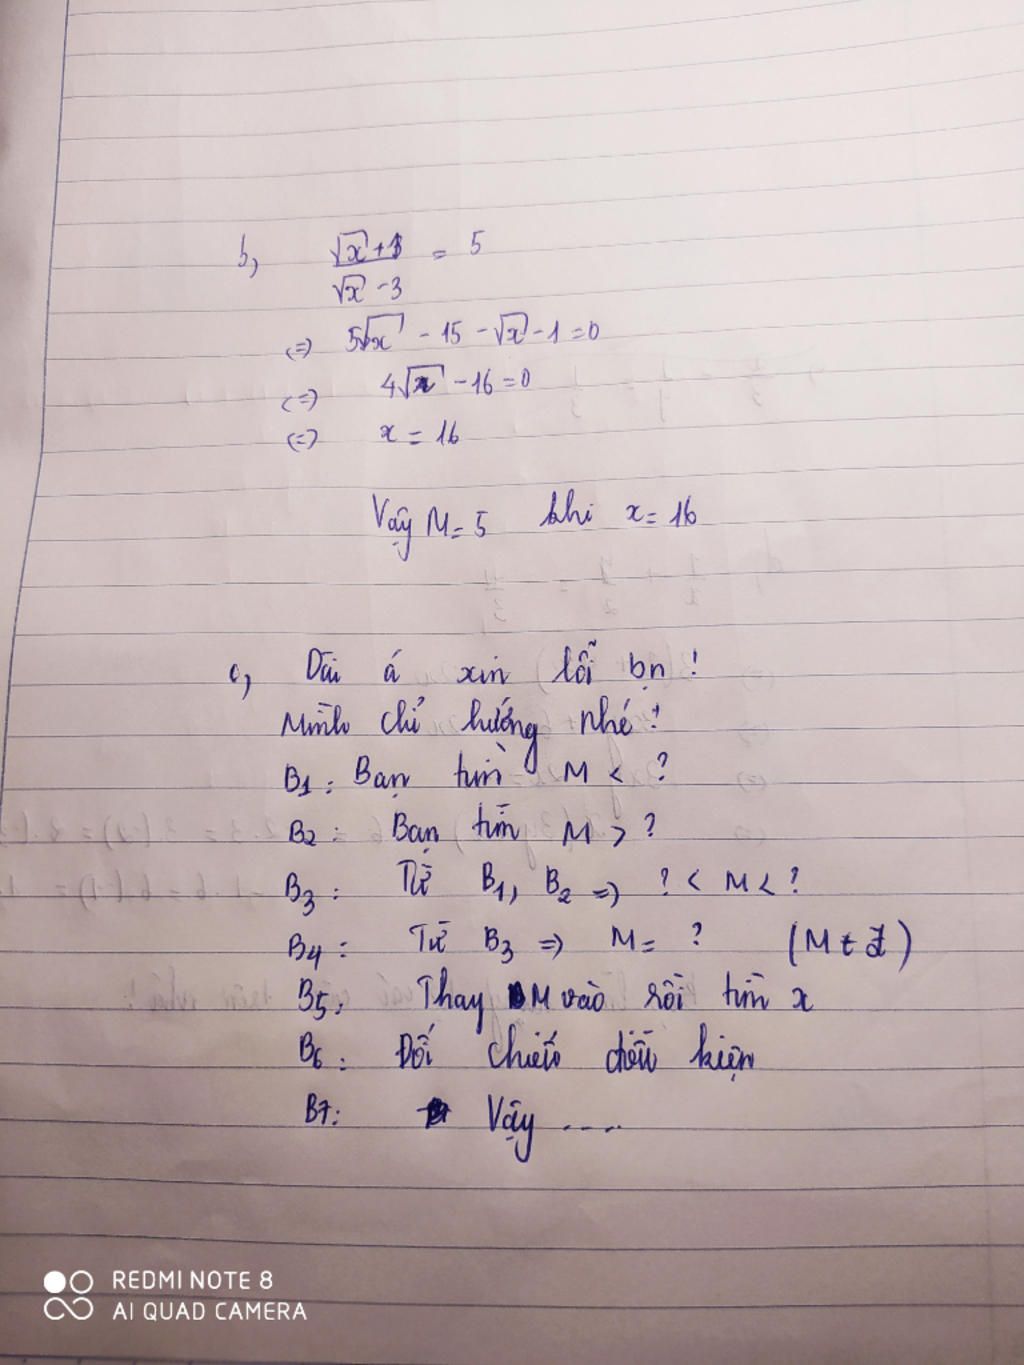 b, √x + 1 / √x - 3 = 5
<=> 5√x - 15 - √x - 1 = 0
<=> 4√x - 16 = 0
<=> x = 16
Vậy M = 5 khi x = 16
c, Dài á xin lỗi bn !
Mình chỉ hướng nhé !
B1 : Bạn tìm M < ?
B2 : Bạn tìm M > ?
B3 : Từ B1, B2 => ? < M < ?
B4 : Từ B3 => M = ? (M ∈ Z)
B5 : Thay M vào rồi tìm x
B6 : Đối chiếu điều kiện
B7 : Vậy ....
REDMI NOTE 8
AI QUAD CAMERA